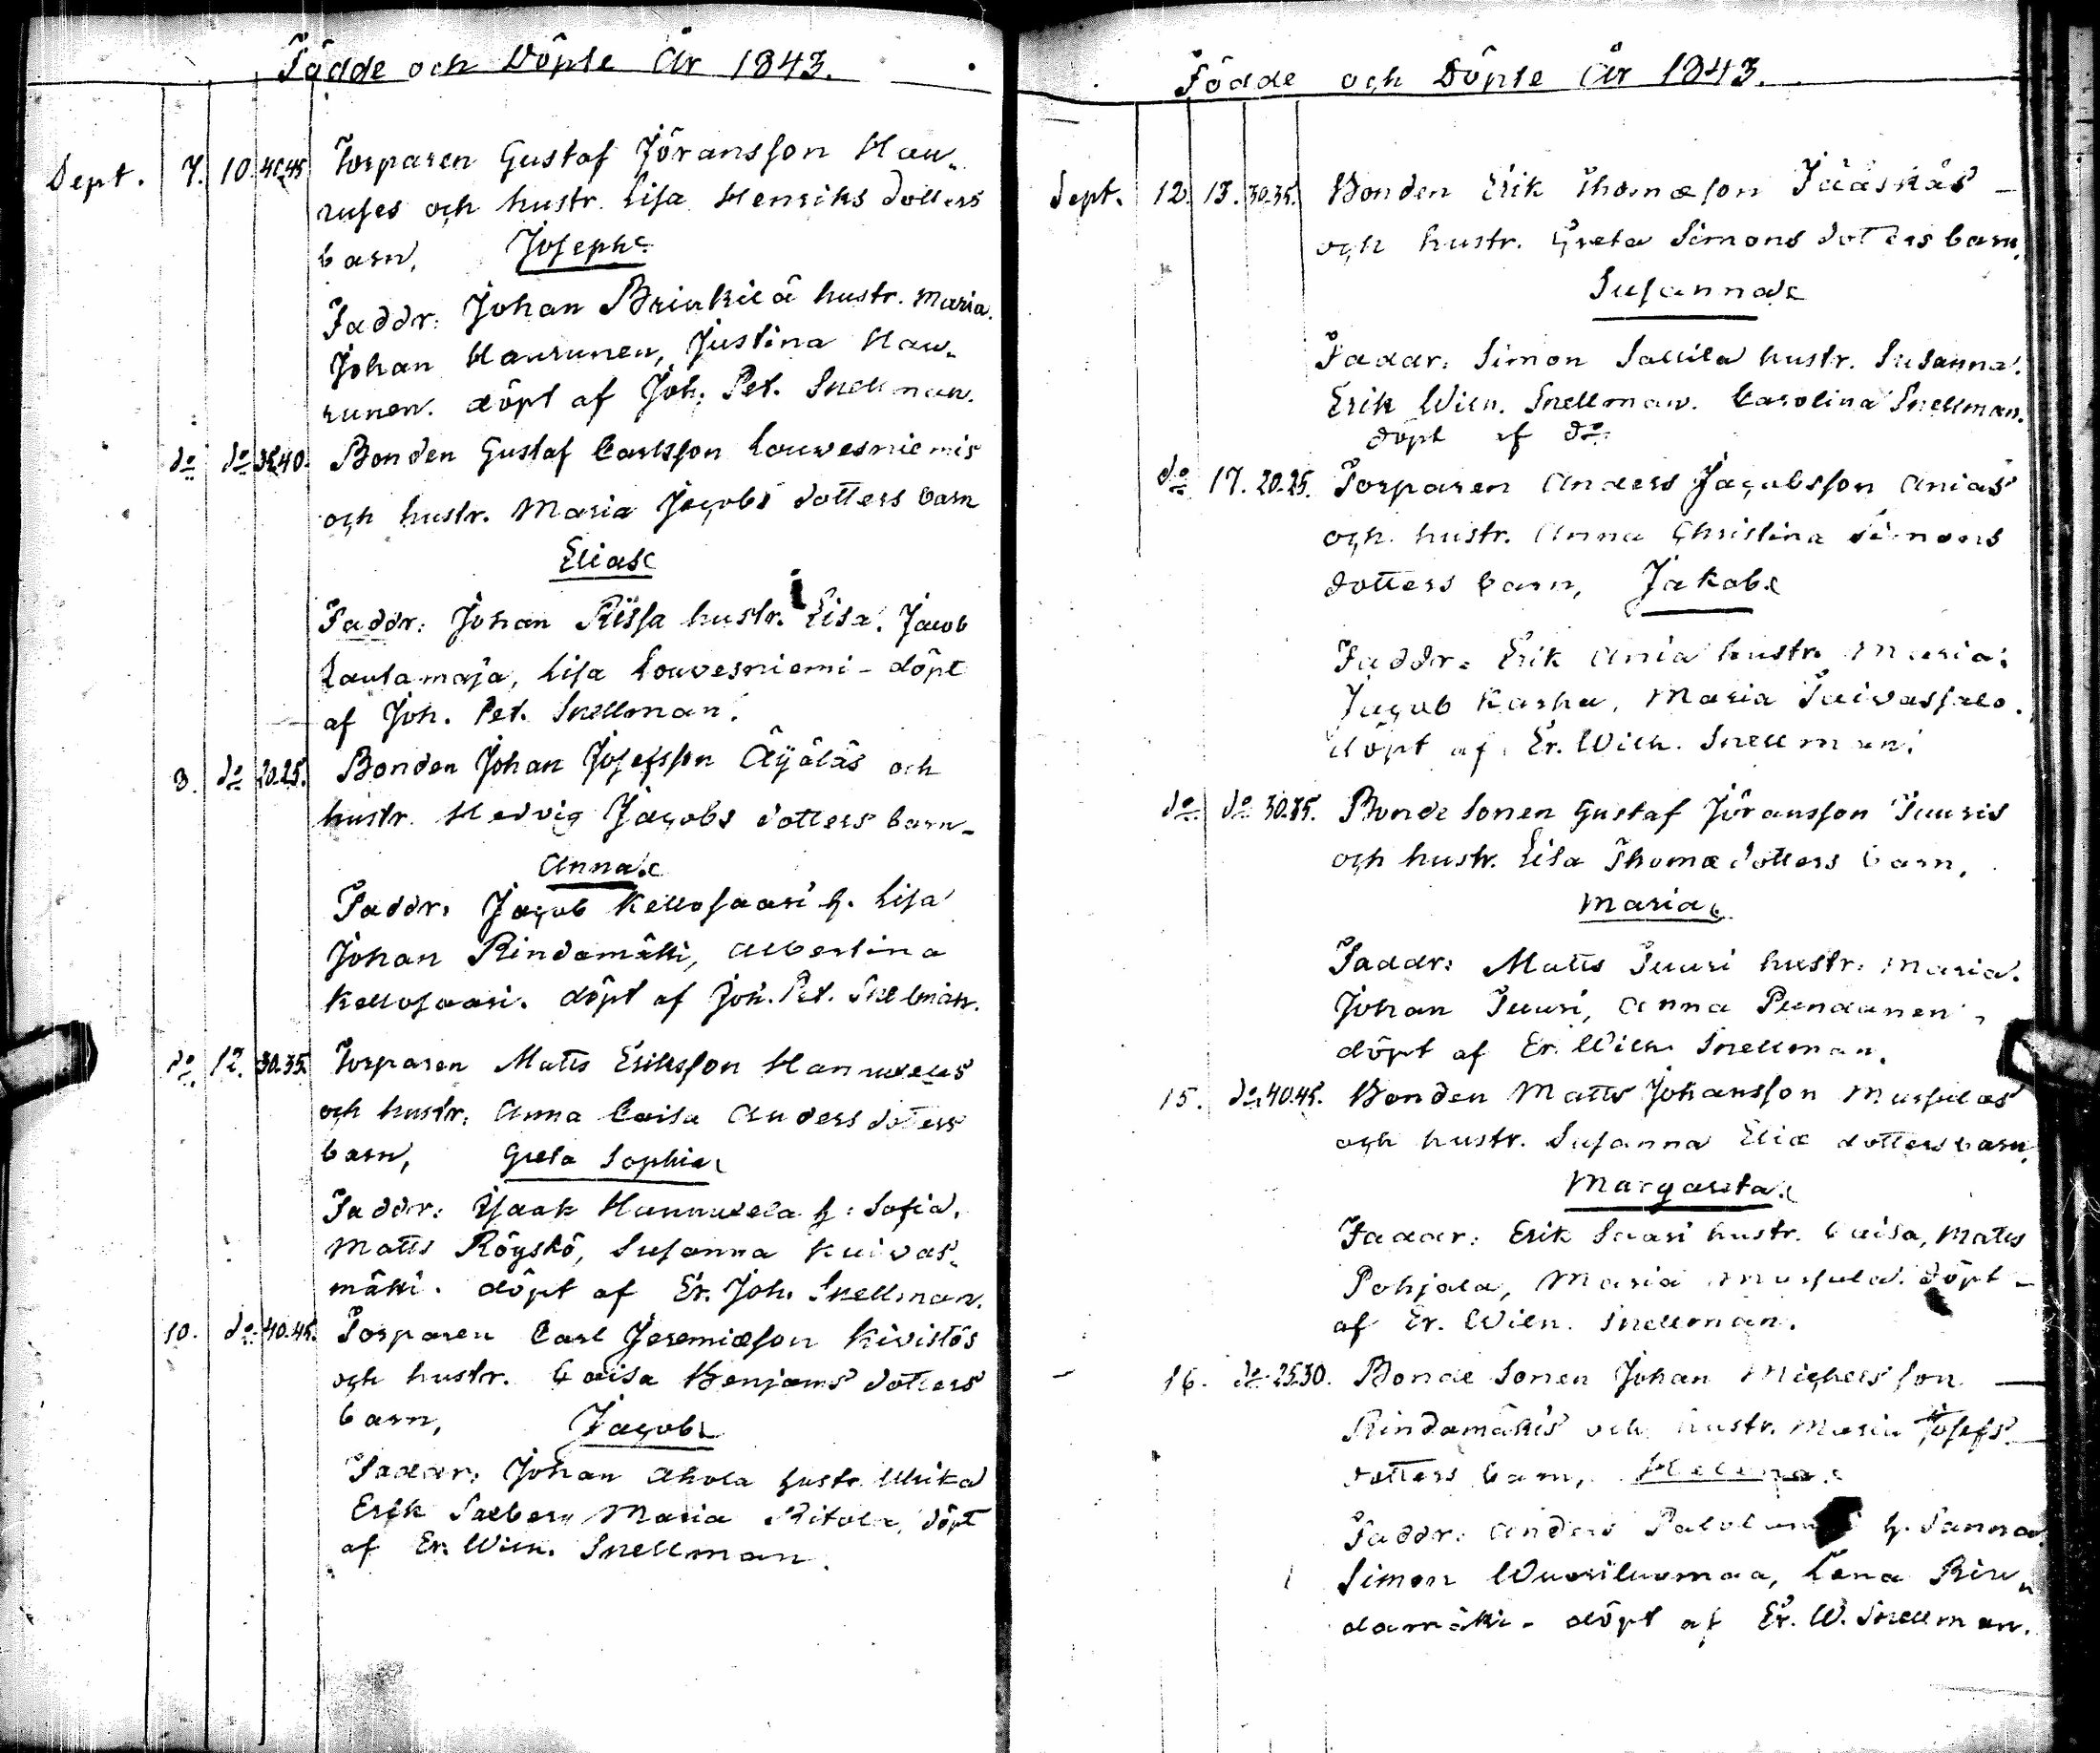 Födde och Döpte År 1843.
Sept. 7. 10. 40.45 Torparen Gustaf Jöransson Hau-
ruses och hustr. Lisa Henriks dotters
barn, Joseph.
Faddr: Johan Brinkilä hustr. Maria.
Johan Haurunen, Justina Hau-
runen. döpt af Joh. Pet. Snellman.
do do 35.40. Bonden Gustaf Carlsson Louvesniemis
och hustr. Maria Jacobs dotters barn
Elias
Faddr: Johan Rissa hustr. Lisa. Jacob
Lautamaja, Lisa Louvesniemi - döpt
af Joh. Pet. Snellman.
8. do 20.25. Bonden Johan Josefsson Äyäläs och
hustr. Hedvig Jacobs dotters barn-
Anna.
Faddr: Jacob Kellosaari h. Lisa
Johan Rindamäki, Albertina
Kellosaari. döpt af Joh. Pet. Snellman.
do 12. 30.35. Torparen Matts Eriksson Hannukelas
och hustr. Anna Caisa Anders dotters
barn, Greta Sophia
Faddr: Isaak Hannukela h: Sofia.
Matts Röyskö, Susanna Kuivas-
mäki. döpt af Er. Joh. Snellman.
10. do 40.45. Torparen Carl Jeremiæson Kivistös
och hustr. Caisa Benjams dotters
barn, Jacob
Faddr: Johan Ahola hustr. Ulrika
Erik Salberg Maria Ritola, döpt
af Er. Wilh. Snellman.
Födde och Döpte År 1843.
Sept. 12. 13. 30.35. Bonden Erik Thomæson Jääskäs -
och hustr. Greta Simons dotters barn.
Susanna
Faddr: Simon Sallila hustr. Susanna.
Erik Wilh. Snellman. Carolina Snellman.
döpt af do
do 17. 20.25. Torparen Anders Jacobsson Anias
och hustr. Anna Christina Simons
dotters barn, Jakob.
Faddr: Erik Ania hustr. Maria.
Jacob Karhu, Maria Taivassalo.
döpt af Er. Wilh. Snellman.
do do 30.35. Bonde Sonen Gustaf Jöransson Tuuris
och hustr. Lisa Thomæ dotters barn,
Maria
Faddr: Matts Tuuri hustr: Maria.
Johan Tuuri, Anna Pundanen,
döpt af Er. Wilh. Snellman.
15. do 40.45. Bonden Matts Johansson Murfulas
och hustr. Susanna Eliæ dotters barn,
Margareta.
Faddr: Erik Saari hustr. Caisa, Matts
Pohjala, Maria Murfula. döpt -
af Er. Wilh. Snellman.
16. do 25.30. Bonde Sonen Johan Michelsson
Rindamäkis och hustr. Maria Josefs
dotters barn, Helena.
Faddr: Anders h. Sanna.
Simon Wuoriluomaa, Lena Rin-
damäki - döpt af Er. W. Snellman.